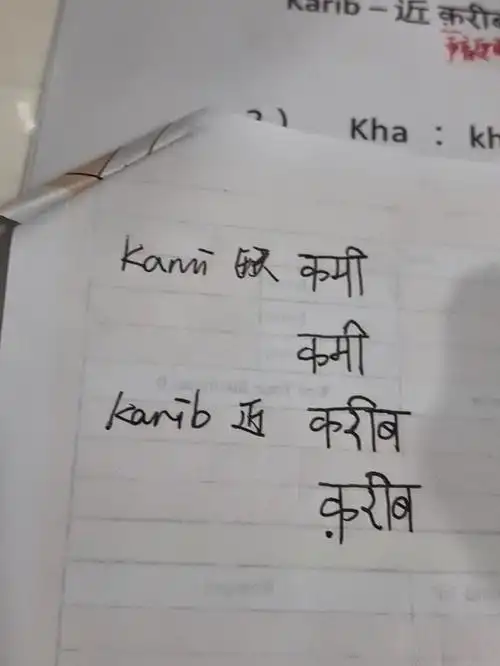 Karib – 近 क़री
Kha : kh
Kami 缺 कमी
कमी
Karib 近 करीब
क़रीब